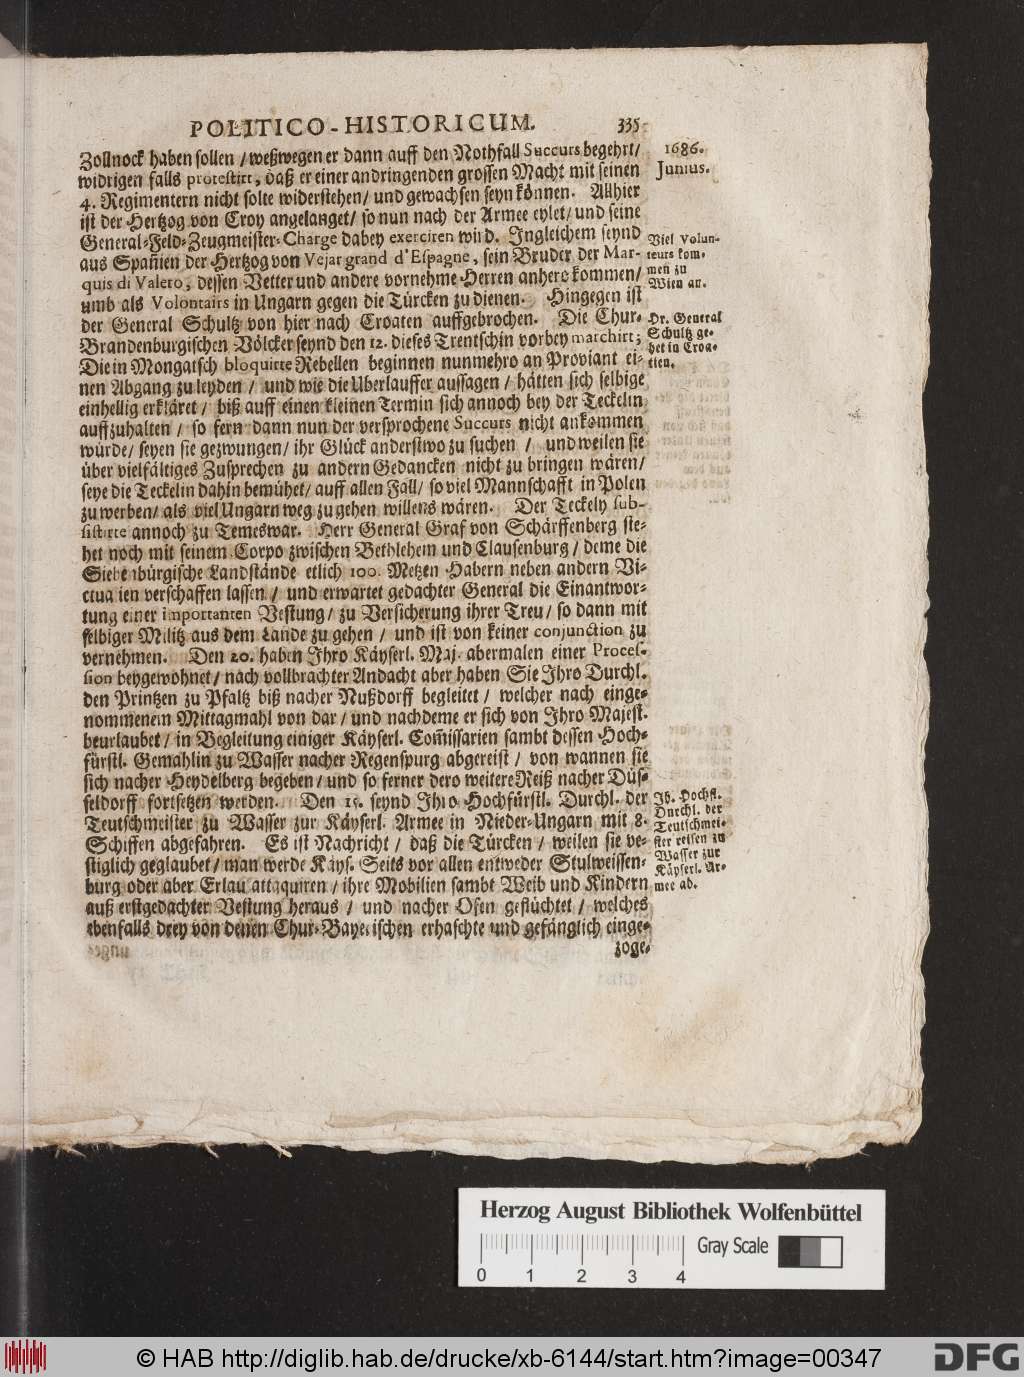 POLITICO-HISTORICUM. 335
Zollnock haben sollen / weßwegen er dann auff den Nothfall Succurs begehrt /
widrigen falls protestirt, daß er einer andringenden grossen Macht mit seinen
4. Regimentern nicht solte widerstehen / und gewachsen seyn können. Allhier
ist der Hertzog von Croy angelanget / so nun nach der Armee eylet / und seine
General-Feld-Zeugmeister-Charge dabey exerciren wird. Ingleichem seynd
aus Spañien der Hertzog von Vejar grand d'Espagne, sein Bruder der Mar-
quis di Valero, dessen Vetter und andere vornehme Herren anhero kommen /
umb als Volontairs in Ungarn gegen die Türcken zu dienen. Hingegen ist
der General Schultz von hier nach Croaten auffgebrochen. Die Chur-
Brandenburgischen Völcker seynd den 12. dieses Trentschin vorbey marchirt;
Die in Mongatsch bloquirte Rebellen beginnen nunmehro an Proviant ei-
nen Abgang zu leyden / und wie die Uberlauffer aussagen / hätten sich selbige
einhellig erkläret / biß auff einen kleinen Termin sich annoch bey der Teckelin
auffzuhalten / so fern dann nun der versprochene Succurs nicht ankommen
würde / seyen sie gezwungen / ihr Glück anderstwo zu suchen / und weilen sie
über vielfältiges Zusprechen zu andern Gedancken nicht zu bringen wären /
seye die Teckelin dahin bemühet / auff allen Fall / so viel Mannschafft in Polen
zu werben / als viel Ungarn weg zu gehen willens wären. Der Teckely sub-
sistirte annoch zu Temeswar. Herr General Graf von Schärffenberg ste-
het noch mit seinem Corpo zwischen Bethlehem und Clausenburg / deme die
Siebenbürgische Landstände etlich 100. Metzen Habern neben andern Vi-
ctualien verschaffen lassen / und erwartet gedachter General die Einantwor-
tung einer importanten Vestung / zu Versicherung ihrer Treu / so dann mit
selbiger Militz aus dem Lande zu gehen / und ist von keiner conjunction zu
vernehmen. Den 20. haben Ihro Käyserl. Maj. abermalen einer Proces-
sion beygewohnet / nach vollbrachter Andacht aber haben Sie Ihro Durchl.
den Printzen zu Pfaltz biß nacher Nußdorff begleitet / welcher nach einge-
nommenem Mittagmahl von dar / und nachdeme er sich von Ihro Majest.
beurlaubet / in Begleitung einiger Käyserl. Com̃issarien sambt dessen Hoch-
fürstl. Gemahlin zu Wasser nacher Regenspurg abgereist / von wannen sie
sich nacher Heydelberg begeben / und so ferner dero weitere Reiß nacher Düs-
seldorff fortsetzen werden. Den 15. seynd Ihro Hochfürstl. Durchl. der
Teutschmeister zu Wasser zur Käyserl. Armee in Nieder-Ungarn mit 8.
Schiffen abgefahren. Es ist Nachricht / daß die Türcken / weilen sie ve-
stiglich geglaubet / man werde Käys. Seits vor allen entweder Stulweissen-
burg oder aber Erlau attaquiren / ihre Mobilien sambt Weib und Kindern
auß erstgedachter Vestung heraus / und nacher Ofen geflüchtet / welches
ebenfalls drey von denen Chur-Bayerischen erhaschte und gefänglich einge-
zoge-
1686.
Junius.
Viel Volun-
teurs kom-
men zu
Wien an.
Hr. General
Schultz ge-
het in Croa-
tien.
Ih. Hochfl.
Durchl. der
Teutschmei-
ster reisen zu
Wasser zur
Käyserl. Ar-
mee ab.
Herzog August Bibliothek Wolfenbüttel
Gray Scale
0 1 2 3 4
© HAB http://diglib.hab.de/drucke/xb-6144/start.htm?image=00347
DFG